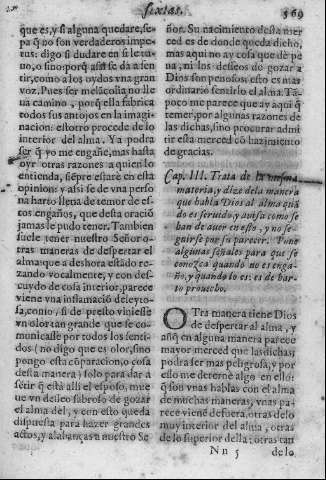 Sextas.
569
que es, y si alguna quedare, se-
pa q̃ no son verdaderos impe-
tus: digo si dudare en si le tu-
uo, o sino: porq̃ assi se da a sen-
tir, como a los oydos vna gran
voz. Pues ser melãcolia no lle
ua camino, porq̃ ella fabrica
todos sus antojos en la imagi-
nacion: estotro procede de lo
interior del alma. Ya podra
ser q̃ yo me engañe, mas hasta
oyr otras razones a quien lo
entienda, siẽpre estarè en esta
opinion: y assi se de vna perso
na harto llena de temor de es-
tos engaños, que desta oraciõ
jamas le pudo tener. Tambien
suele tener nuestro Señor o-
tras maneras de despertar el
alma: que a deshora estãdo re-
zando vocalmente, y con des-
cuydo de cosa interior, parece
viene vna inflamaciõ deleyto-
sa, como, si de presto viniesse
vn olor tan grande que se co-
municasse por todos los senti-
dos (no digo que es olor, sino
pongo esta cõparacion, o cosa
desta manera) solo para dar a
sẽtir q̃ està alli el esposo, mue
ue vn desseo sabroso de gozar
el alma del, y con esto queda
dispuesta para hazer grandes
actos, y alabanças a nuestro Se
ñor. Su nacimiento desta mer
ced es de donde queda dicho,
mas aqui no ay cosa que dè pe
na, ni los desseos de gozar a
Dios son penosos: esto es mas
ordinario sentirlo el alma. Tã-
poco me parece que ay aqui q̃
temer, por algunas razones de
las dichas, sino procurar admi
tir esta merced cõ hazimiento
de gracias.
Cap. III. Trata de la misma
materia, y dize de la manera
que habla Dios al alma quã
do es seruido, y auisa como se
han de auer en esto, y no se-
guirse por su parecer. Pone
algunas señales para que se
conozca quando no es enga-
ño, y quando lo es: es de har-
to prouecho.
OTra manera tiene Dios
de despertar al alma, y
aũq̃ en alguna manera parece
mayor merced que las dichas,
podra ser mas peligrosa, y por
esso me deternè algo en ella:
q̃ son vnas hablas con el alma
de muchas maneras, vnas pa-
rece vienẽ de fuera, otras de lo
muy interior del alma, otras
de lo superior della; otras tan
Nn 5
de lo